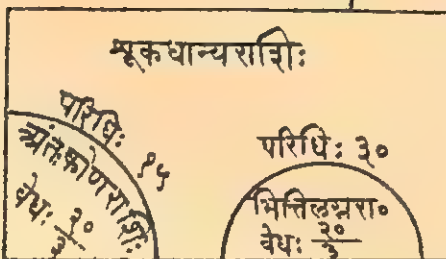 शूकधान्यराशिः
परिधिः १५
अंतःकोणराशिः
वेधः २०/३
परिधिः ३०
भित्तिलग्नरा०
वेधः २०/३